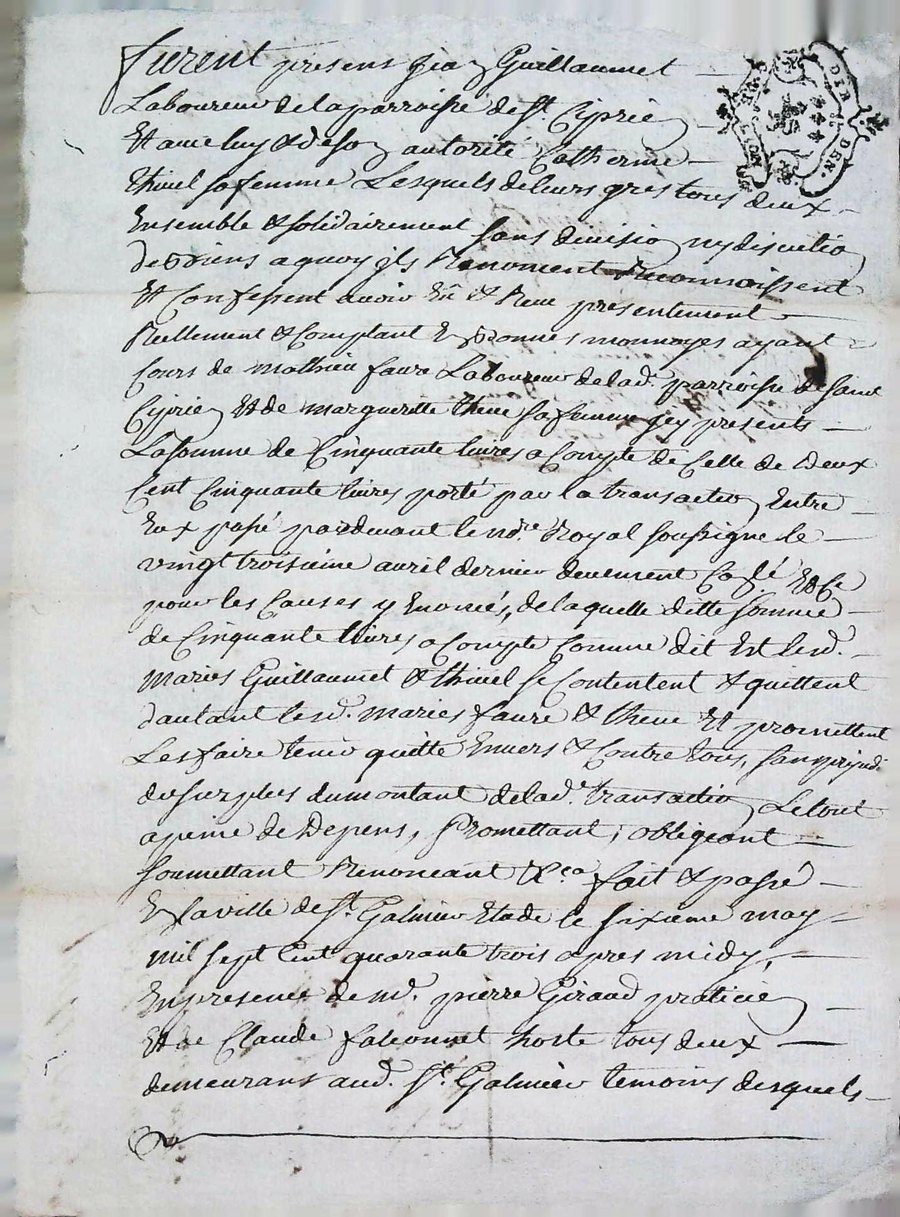 furent presens Jean Guillaumet
Laboureur de la parroisse de St. Ciprien
Et avec luy & de son autorité Catherine
thivel sa femme Lesquels de leurs gres tous deux
Ensemble & solidairement sans division ny discution
de biens a quoy ils Renoncent Reconnoissent
Et Confessent avoir Eu & Receu presentement
Reellement & Comptant En bonnes monnoyes ayant
Cours de mathieu faure Laboureur de lad. parroisse de saint
Ciprien Et de margueritte theve sa femme icy presents
La somme de Cinquante livres a Compte de Celle de Deux
Cent Cinquante livres porté par la transaction Entre
Eux passé pardevant le nore. Royal soussigne le
vingt troisieme avril dernier deuement Collé Et Ce
pour les Causes y Enoncé, de laquelle ditte somme
de Cinquante livres a Compte Comme dit Est lesd.
maries Guillaumet & thivel se Contentent & quittent
dautant lesd. maries faure & theve Et promettent
Les faire tenir quitte Envers & Contre tous, sans prejud.
du surplus du montant de lad. transaction Le tout
a peine de Depens, Promettant, obligeant
soumettant Renoncant &ca fait & passé
En la ville de St. Galmier Etude le sixieme may
mil sept Cent quarante trois apres midy,
En presence de md. pierre Giraud praticien
Et de Claude falconnet hoste tous deux
demeurans aud. St. Galmier temoins desquels